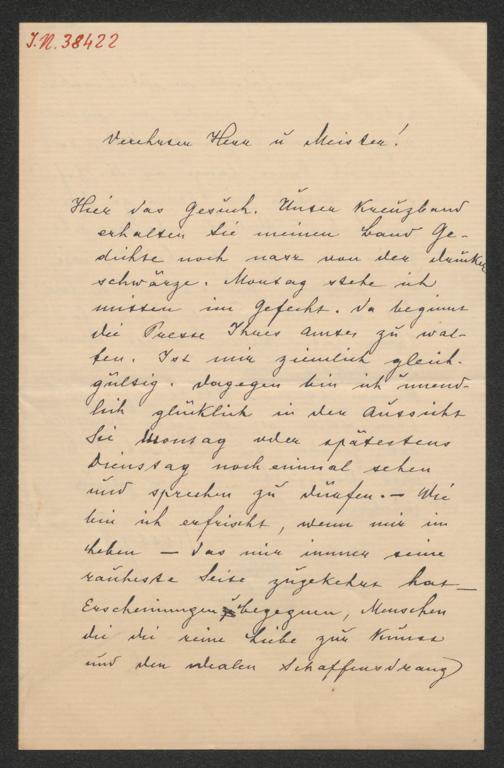 J.N. 38422
Verehrter Herr u Meister!
Hier das Gesuch. Unter Kreuzband
erhalten Sie meinen Band Ge-
dichte noch nass von der Drucker
schwärze. Montag stehe ich
mitten im Gefecht. Da beginnt
die Presse Ihres Amtes zu wal-
ten. Ist mir ziemlich gleich-
gültig. Dagegen bin ich unend-
lich glücklich in der Aussicht
Sie Montag oder spätestens
Dienstag noch einmal sehen
und sprechen zu dürfen. — Wie
bin ich erfrischt, wenn mir im
Leben — das mir immer seine
rauheste Seite zugekehrt hat —
Erscheinungen begegnen, Menschen
die die reine Liebe zur Kunst
und den idealen Schaffensdrang